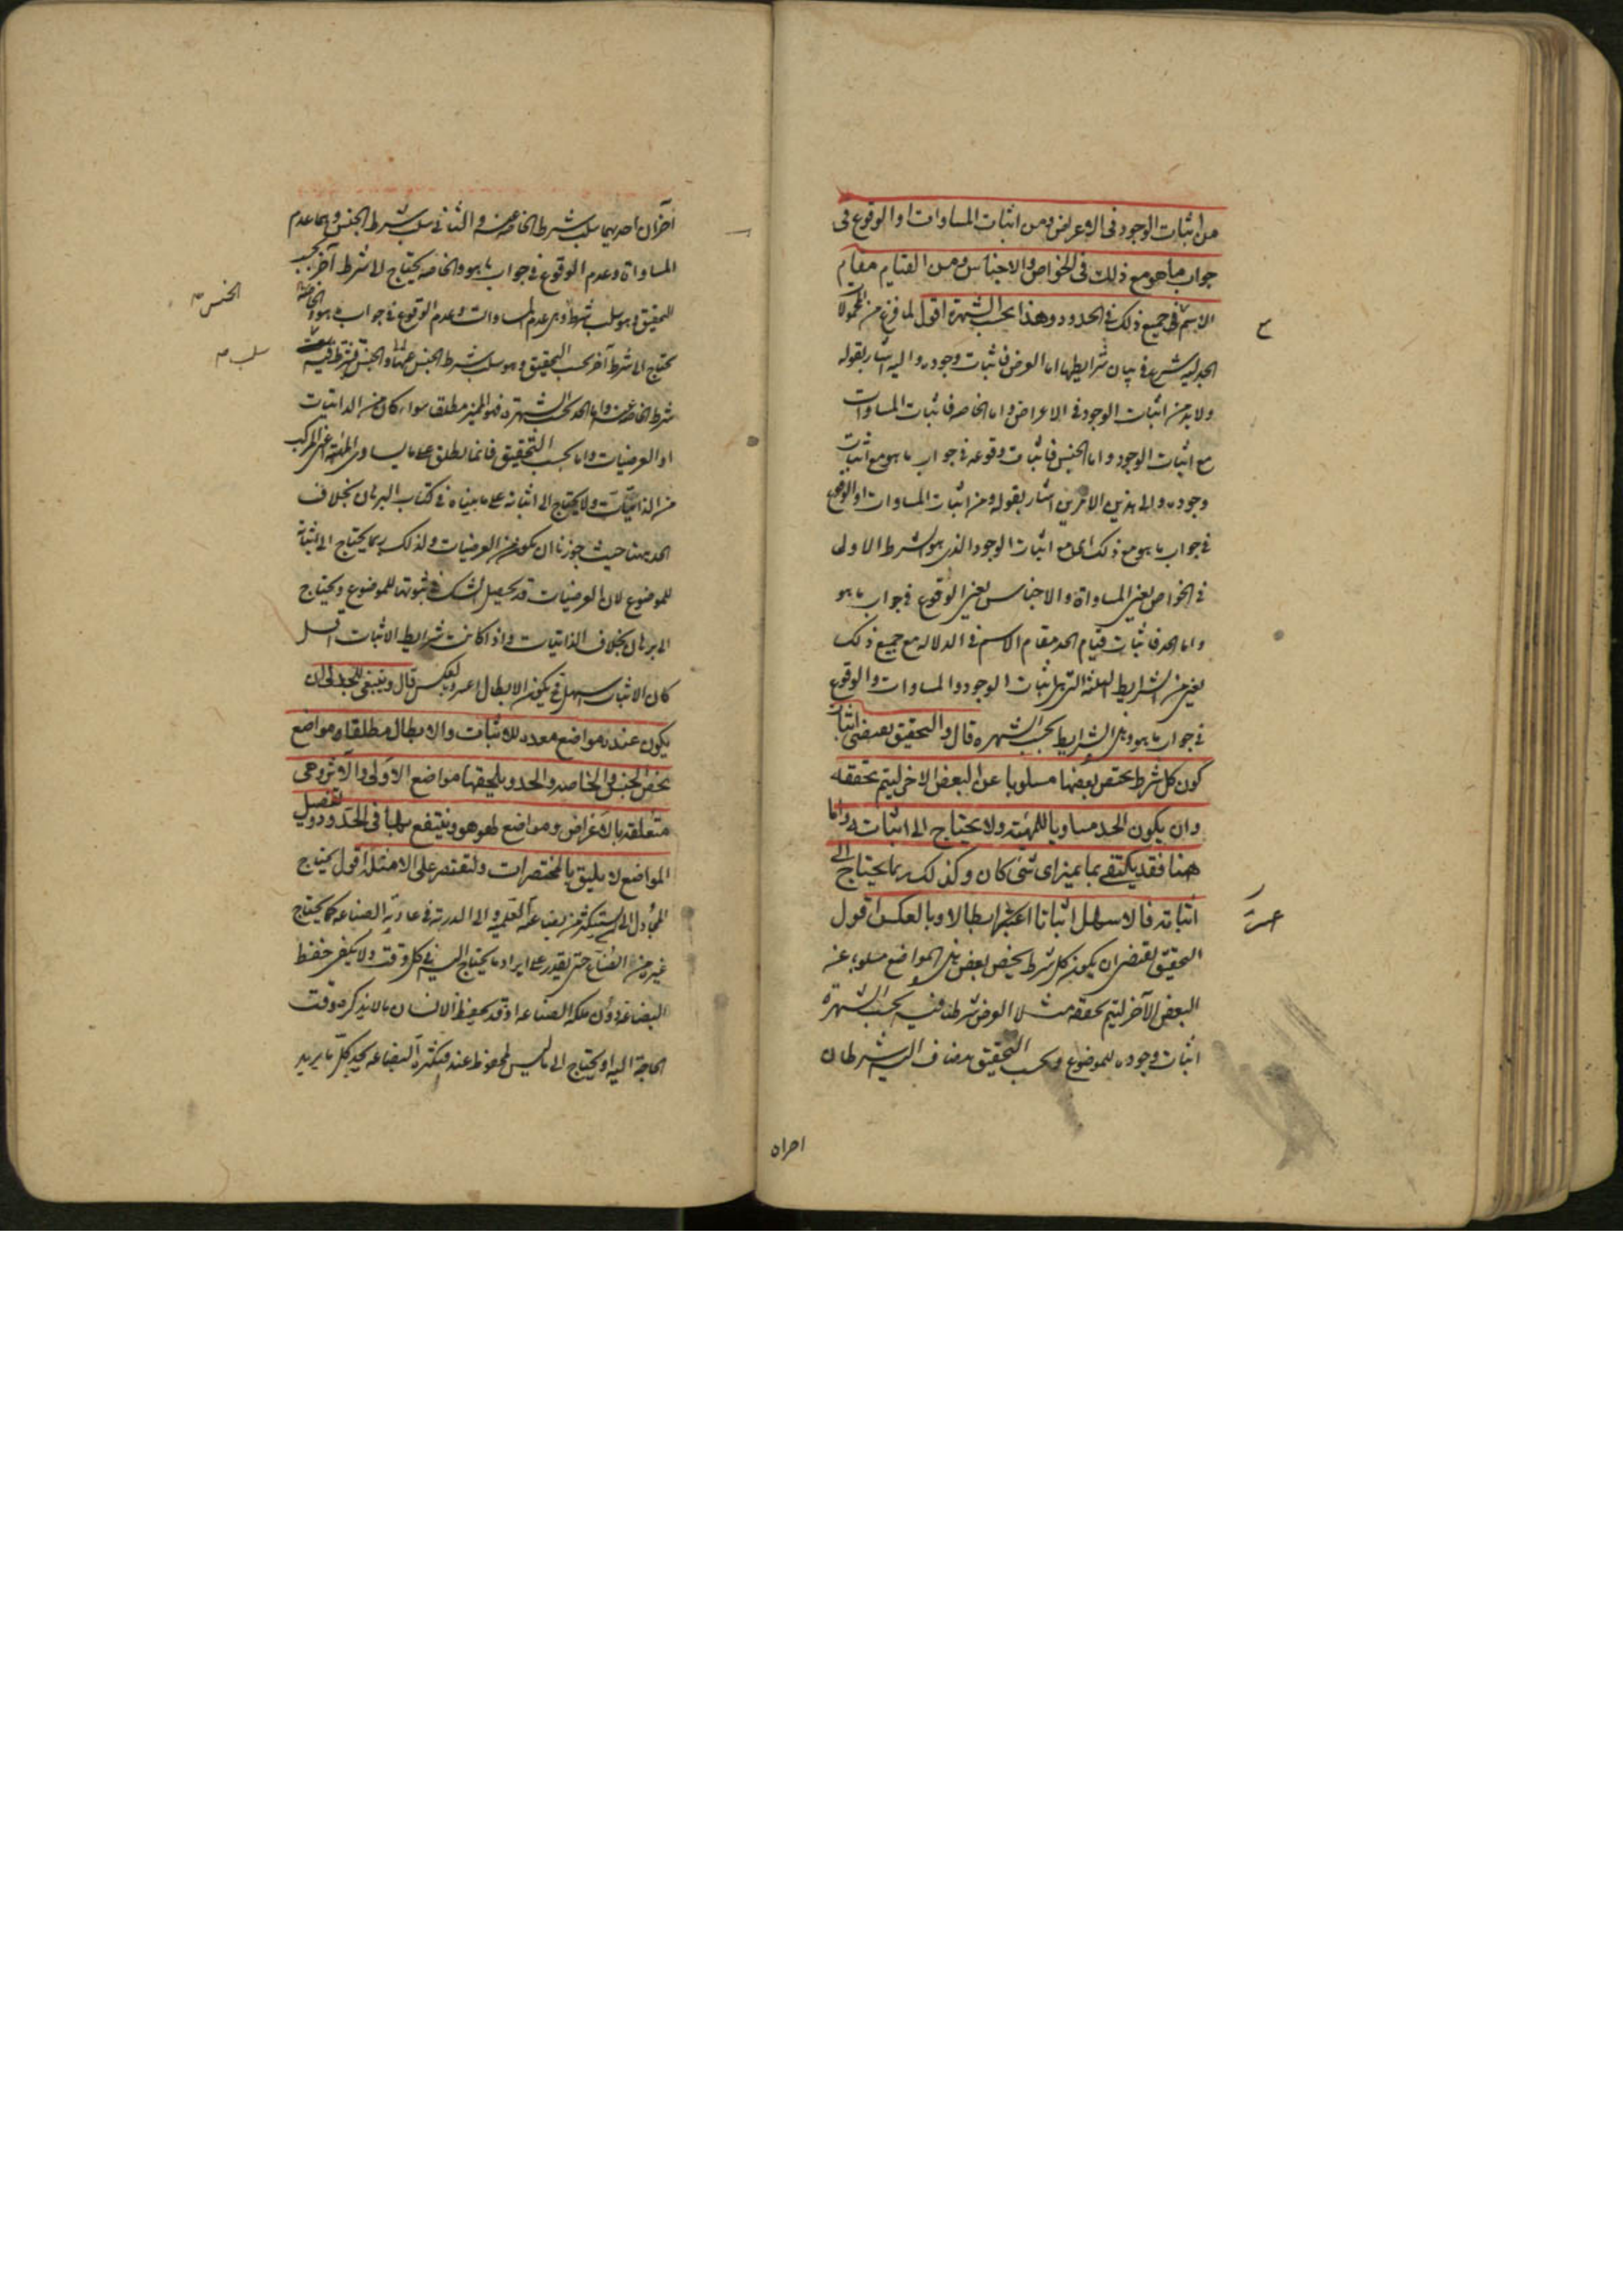 من اثبات الوجود فى الاعراض ومن اثبات المساوات او الوقوع فى
جواب ما هو مع ذلك فى الخواص والاجناس ومن القيام مقام
الاسم فى جميع ذلك فى الحدود وهذا بحسب الشهرة اقول لما فرغ من المحمولات
الجدلية شرع فى بيان شرايطها اما العرض فاثبات وجوده واليه اشار بقوله
ولا بد من اثبات الوجود فى الاعراض واما الخاصه فاثبات المساوات
مع اثبات الوجود واما الجنس فاثبات وقوعه فى جواب ما هو مع اثبات
وجوده والى هذين الامرين اشار بقوله ومن اثبات المساوات او الوقوع
فى جواب ما هو مع ذلك اى مع اثبات الوجود الذى هو الشرط الاولى
فى الخواص يعنى المساواة والاجناس يعنى الوقوع فى جواب ما هو
واما الحد فاثبات قيام الحد مقام الاسم فى الدلاله مع جميع ذلك
يعنى من الشرايط الثلثة التى هى اثبات الوجود والمساوات والوقوع
فى جواب ما هو وهى الشرايط بحسب الشهره قال والتحقيق يقتضى اثبات
كون كل شرط يختص بعضها مسلوبا عن البعض الاخر ليتم تحققه
وان يكون الحد مساويا للمهيته ولا يحتاج الى اثباته واما
هنا فقد يكتفى بما يميز اى شى كان وكذلك ربما يحتاج الى
اثباته فالاسهل اثباتا اعسرها ابطالا وبالعكس اقول
التحقيق يقتضى ان يكون كل شرط يخص بعض هذه المواضع مسلوبا عنه
البعض الآخر ليتم تحققه مثلا العرض شرطنا فيه بحسب الشهرة
اثبات وجوده للموضوع وبحسب التحقيق يضاف اليه شرطان
آخران احديهما سلب شرط الخاصه عنه والثانى سلب شرط الجنس وهما عدم
المساواة وعدم الوقوع فى جواب ما هو والخاصه يحتاج الى شرط آخر بحسب
التحقيق وهو سلب شرط وهى عدم المساوات وعدم الوقوع فى جواب ما هو والخاصة
تحتاج الى شرط آخر بحسب التحقيق وهو سلب شرط الجنس عنها والجنس يشترط فيه
الجنس
سلب
شرط الخاصه عنه واما الحد بحسب الشهرة فهو المميز مطلقا سواء كان من الذاتيات
او العرضيات واما بحسب التحقيق فانما يطلق على ما يساوى المهية اعنى المركب
من الذاتيات ولا يحتاج الى اثباته على ما بيناه فى كتاب البرهان بخلاف
الحد هنا حيث جوزنا ان يكون من العرضيات ولذلك ربما يحتاج الى اثباته
للموضوع لان العرضيات قد يحصل الشك فى ثبوتها للموضوع ويحتاج
الى برهان بخلاف الذاتيات واذا كانت شرايط الاثبات اقل
كان الاثبات اسهل فيكون الابطال اعسر وبالعكس قال وينبغى للجدلى ان
يكون عنده مواضع معدة للاثبات والابطال مطلقا ومواضع
تخص الجنس والخاصه والحد ويلحقها مواضع الاولى والآثر وهى
متعلقه بالاعراض ومواضع لهو هو وينتفع بها فى الحدود وتفصيل
المواضع لا يليق بالمختصرات ولنقتصر على الامثلة اقول يحتاج
المجادل الى ان يستكثر من بضاعته العلميه والى الدربة فى عادية الصناعه كما يحتاج
غيره من الصناع حتى يقدر على ايراد ما يحتاج اليه فى كل وقت ولا يكفى حفظ
البضاعه دون ملكة الصناعه اذ قد يحفظ الانسان ما لا يذكره وقت
الحاجة اليه او يحتاج الى ما ليس بمحفوظ عنده فبكثرة البضاعه يجد كل ما يريد